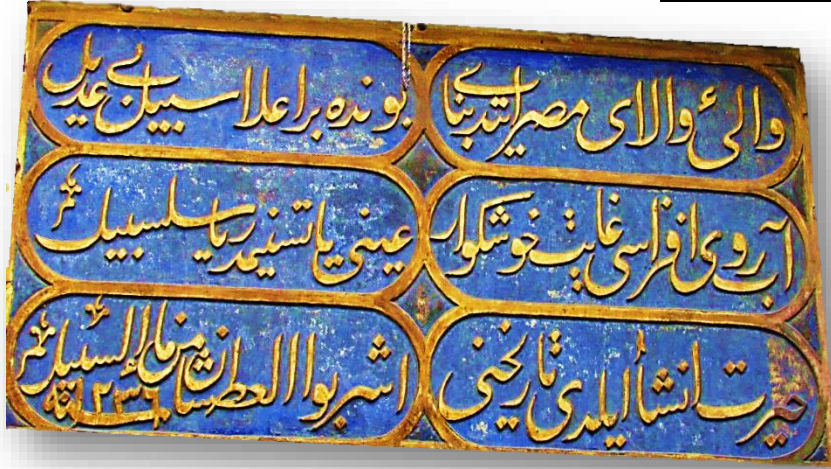 والئ والای مصر ایتدی بنا
بونده بر اعلا سبیل بی عدیل
آب روی افزاسی غایت خوشکوار
عینی یا تسنیمدر یا سلسبیل
حیرت انشأ ایلدی تاریخنی
اشربوا العطشان من ماء السبیل
سنه ١٢٣٦